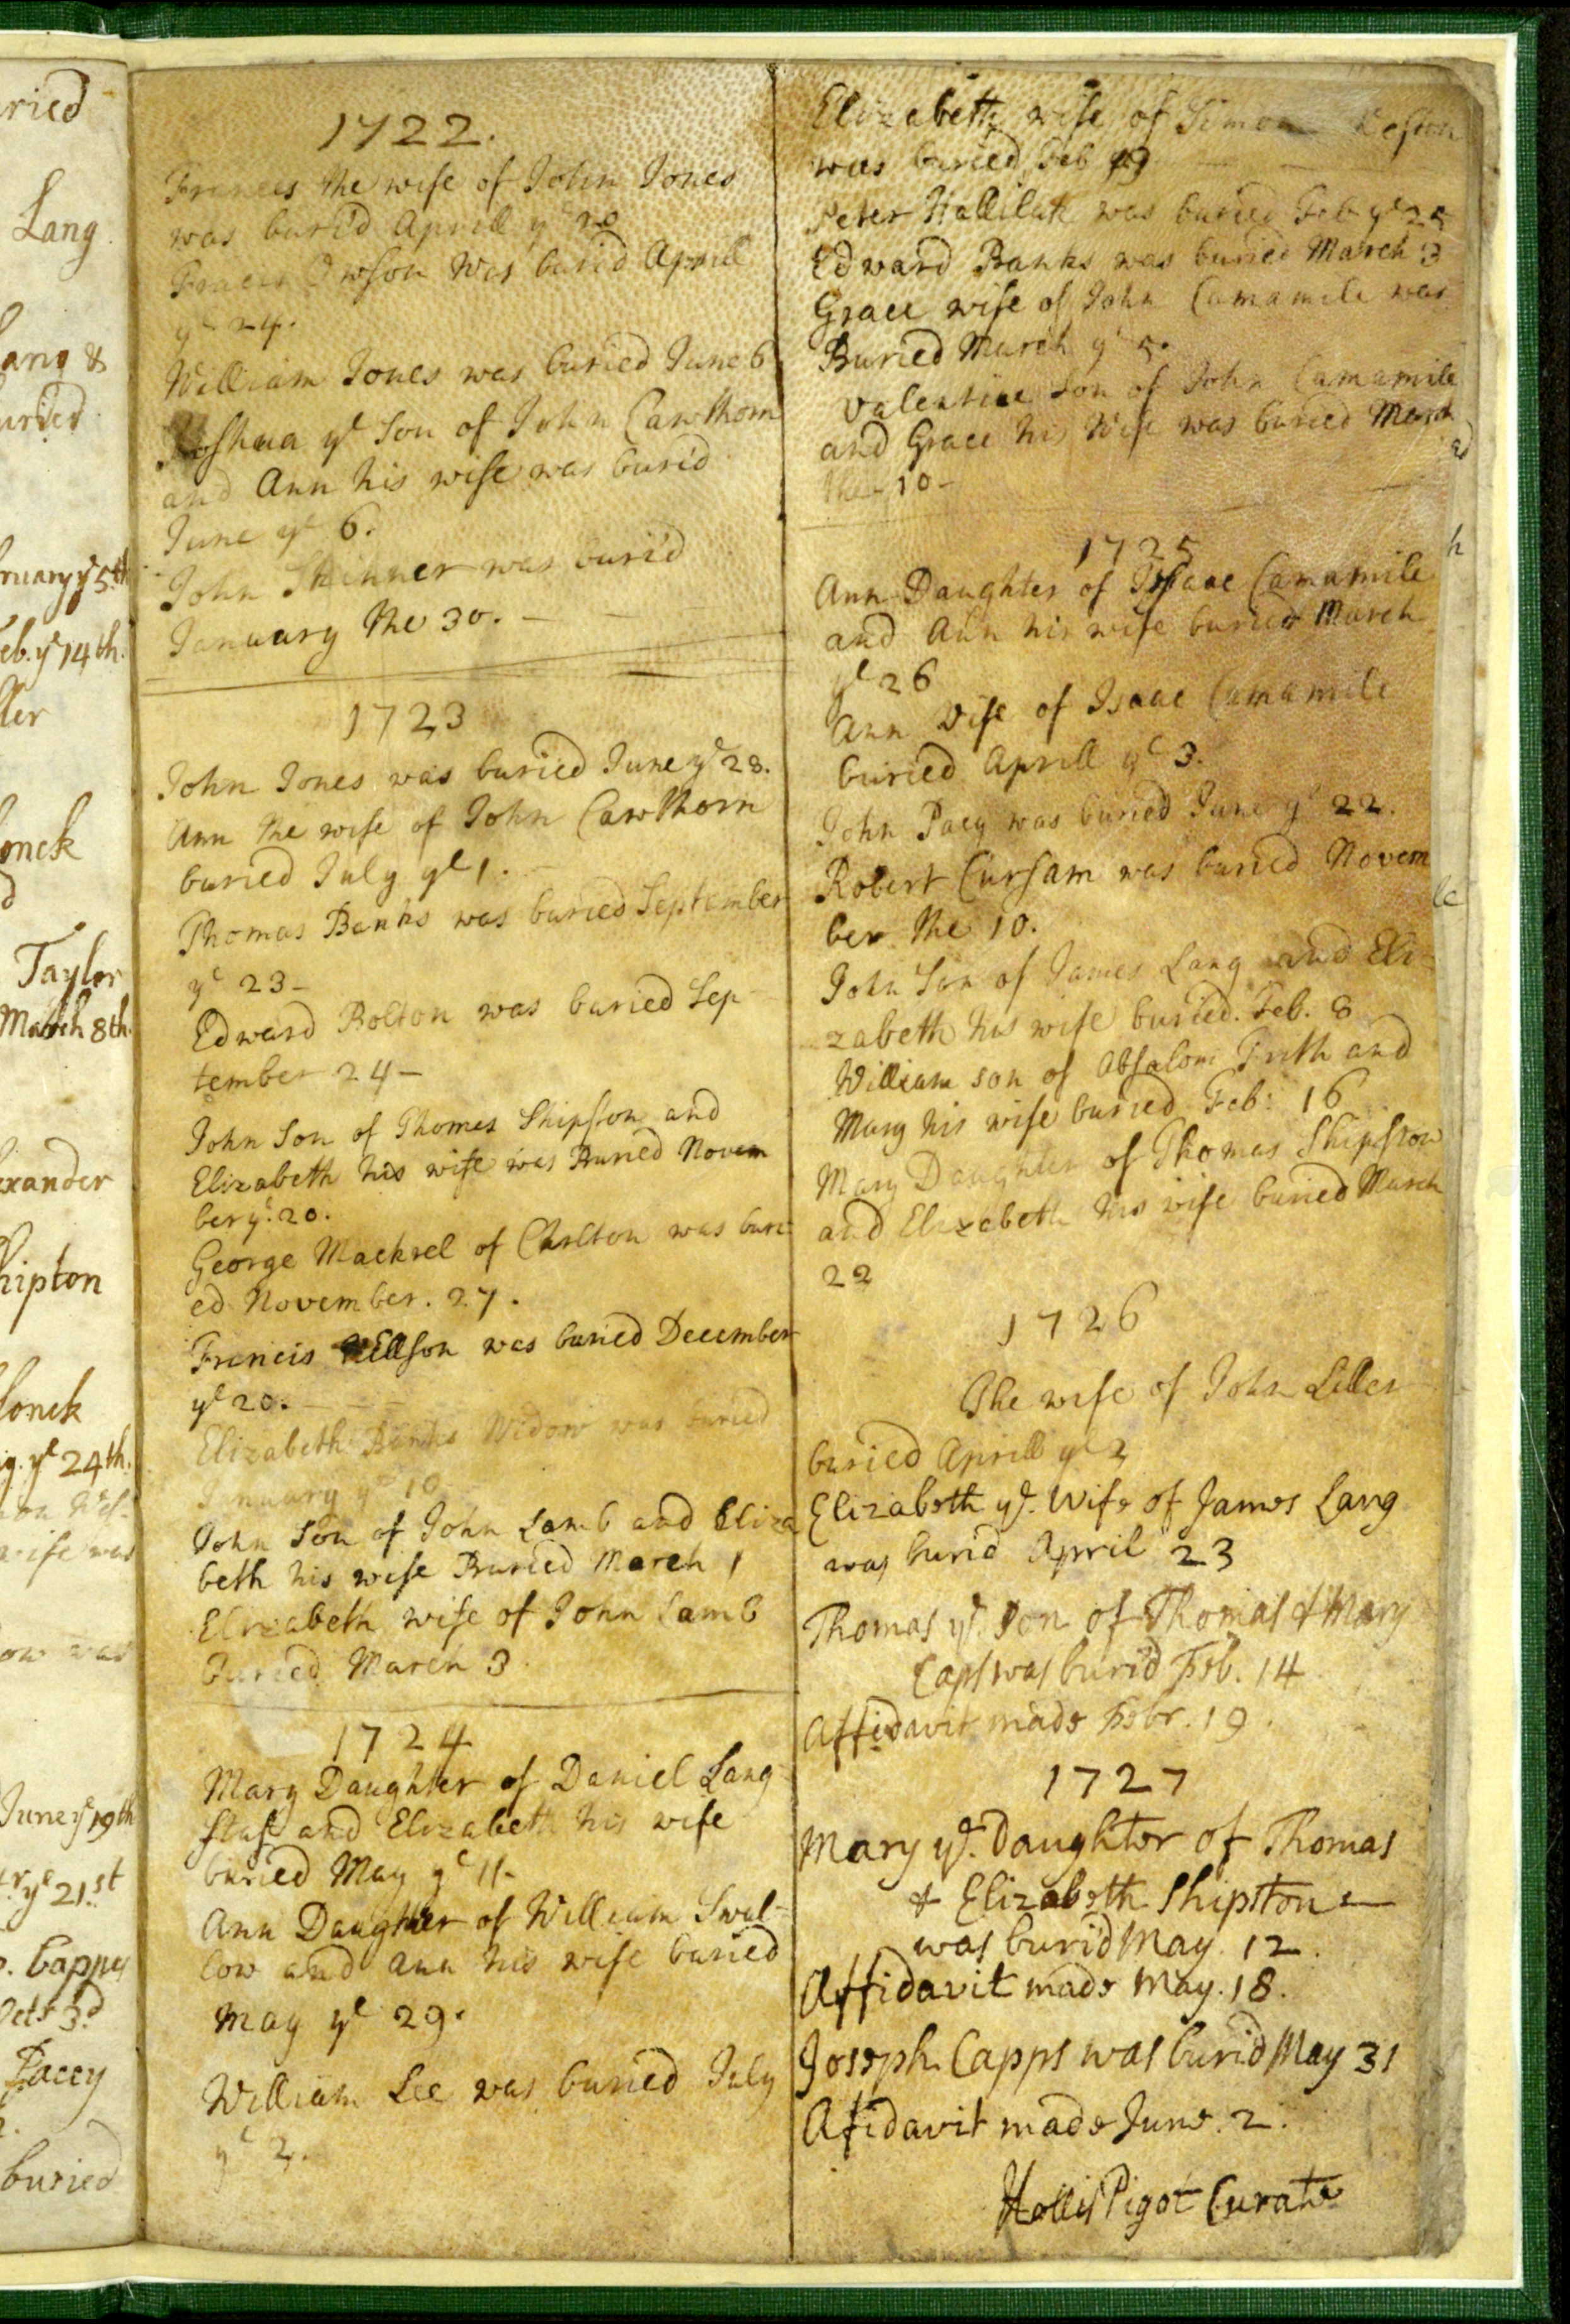 ried
Lang
ang &
uried
ruary yᵉ 5th
eb. yᵉ 14th.
ller
onck
Taylor
March 8th.
exander
hipton
lonck
g. yᵉ 24th.
wife was
ow was
June yᵉ 19th
yᵉ 21st
Cappy
Octr 3d
Pacey
buried
1722.
Frances the wife of John Jones
was buri'd Aprill yᵉ 20
was buri'd Aprill
yᵉ 24.
William Jones was buried June 6
Joshua yᵉ Son of John Cawthorn
and Ann his wife was buri'd
June yᵉ 6.
John Skinner was buri'd
January the 30.
1723
John Jones was buried June yᵉ 28.
Ann the wife of John Cawthorn
buried July yᵉ 1.
Thomas Banks was buried September
yᵉ 23-
Edward Bolton was buried Sep-
tember 24-
John Son of Thomas Shipston and
Elizabeth his wife was Buried Novem
ber yᵉ 20.
George Mackrel of Carlton was buri-
ed November. 27.
Francis Nellson was buried December
yᵉ 20.
Elizabeth Banks Widow was buried
January yᵉ 10
John Son of John Lamb and Eliza
beth his wife Buried March 1
Elizabeth wife of John Lamb
Buried March 3
1724
Mary Daughter of Daniel Lang
staff and Elizabeth his wife
buried May yᵉ 11-
Ann Daughter of William Swal-
low and Ann his wife buried
May yᵉ 29.
William Lee was buried July
yᵉ 2.
Elizabeth wife of Simon
was buried Feb 19
Peter Hallilak was buried Feb yᵉ 25
Edward Banks was buried March 3
Grace wife of John Camamile was
Buried March yᵉ 5.
Valentine Son of John Camamile
and Grace his Wife was buried March
the - 10 -
1725
Ann Daughter of Isaac Camamile
and Ann his wife buried March
yᵉ 26
Ann wife of Isaac Camamile
buried Aprill yᵉ 3.
John Pacy was buried June yᵉ 22.
Robert Cursam was buried Novem
ber the 10.
John Son of James Lang and Eli-
zabeth his wife buried. Feb. 8
William son of Absalom Frith and
Mary his wife buried Feb: 16
Mary Daughter of Thomas Shipston
and Elizabeth his wife buried March
22
1726
The wife of John Liller
buried Aprill yᵉ 2
Elizabeth yᵉ. Wife of James Lang
was burid April 23
Thomas yᵉ. Son of Thomas & Mary
Caps was buri'd Feb. 14
Affidavit made Febr. 19.
1727
Mary yᵉ. Daughter of Thomas
& Elizabeth Shipston
was burid May. 12.
Affidavit made May. 18.
Joseph Capps was burid May 31
Afidavit made June. 2.
Hollis Pigot Curate